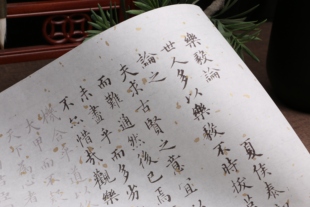 樂毅論 夏侯泰
世人多以樂毅不時拔
論之
夫求古賢之意宜
而難通然後已焉
未盡乎而多劣
不亦惜哉觀樂